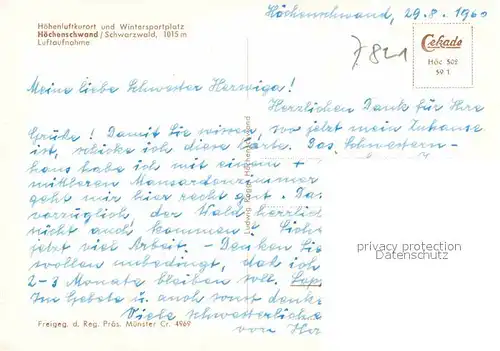 Höhenluftkurort und Wintersportplatz
Höchenschwand / Schwarzwald, 1015 m
Luftaufnahme
Höchenschwand, 29.8.1960
7821
Cekade
Höc 502
59 1
Meine liebe Schwester Herwiga!
Herzlichen Dank für Ihre
Grüße! Damit Sie wissen, wo jetzt mein Zuhause
ist, schicke ich diese Karte. Das Schwestern-
haus habe ich mit einem +
mittleren Mansardenzimmer
geht mir hier recht gut. Da
vorzüglich, der Wald herrlich
nicht auch kommen? Siche
jetzt viel Arbeit. - Denken Sie
wollen unbedingt, daß ich
2-3 Monate bleiben soll.
Im Gebete u. auch sonst denke
Viele schwesterliche
von Ihr
Ludwig Kappi Höchenschwand
privacy protection
Datenschutz
Freigeg. d. Reg. Präs. Münster Cr. 4969